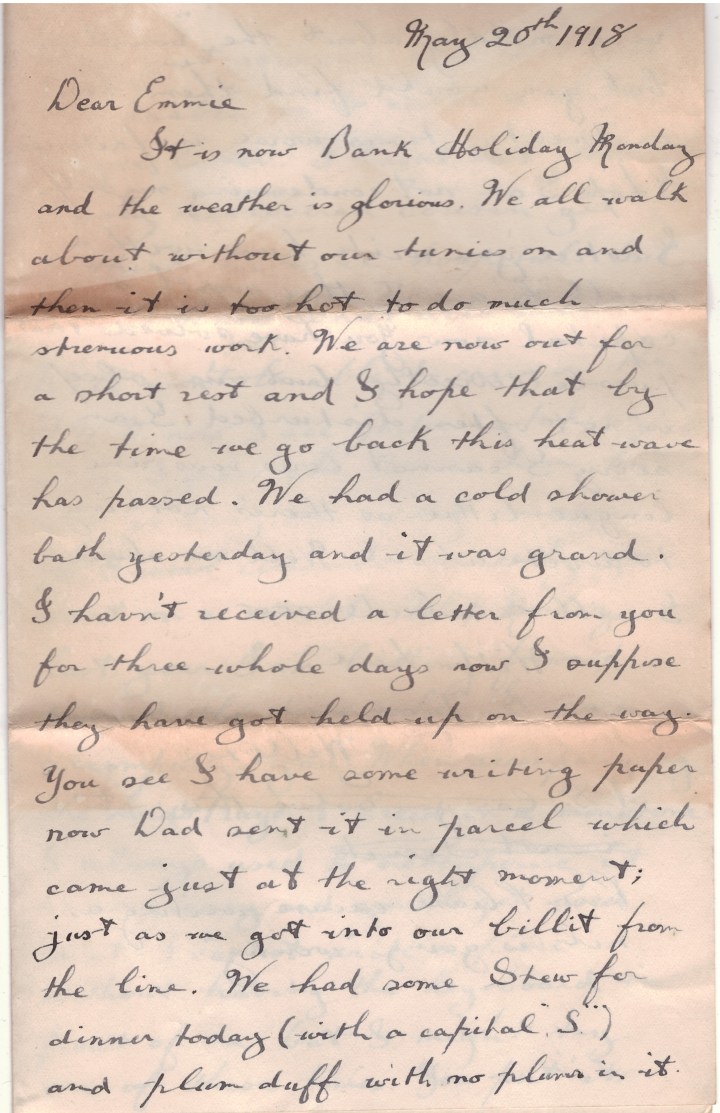 May 20th 1918
Dear Emmie
It is now Bank Holiday Monday
and the weather is glorious. We all walk
about without our tunics on and
then it is too hot to do much
strenuous work. We are now out for
a short rest and I hope that by
the time we go back this heat wave
has passed. We had a cold shower
bath yesterday and it was grand.
I havn't received a letter from you
for three whole days now I suppose
they have got held up on the way.
You see I have some writing paper
now Dad sent it in parcel which
came just at the right moment;
just as we got into our billit from
the line. We had some Stew for
dinner today (with a capital "S")
and plum duff with no plums in it.